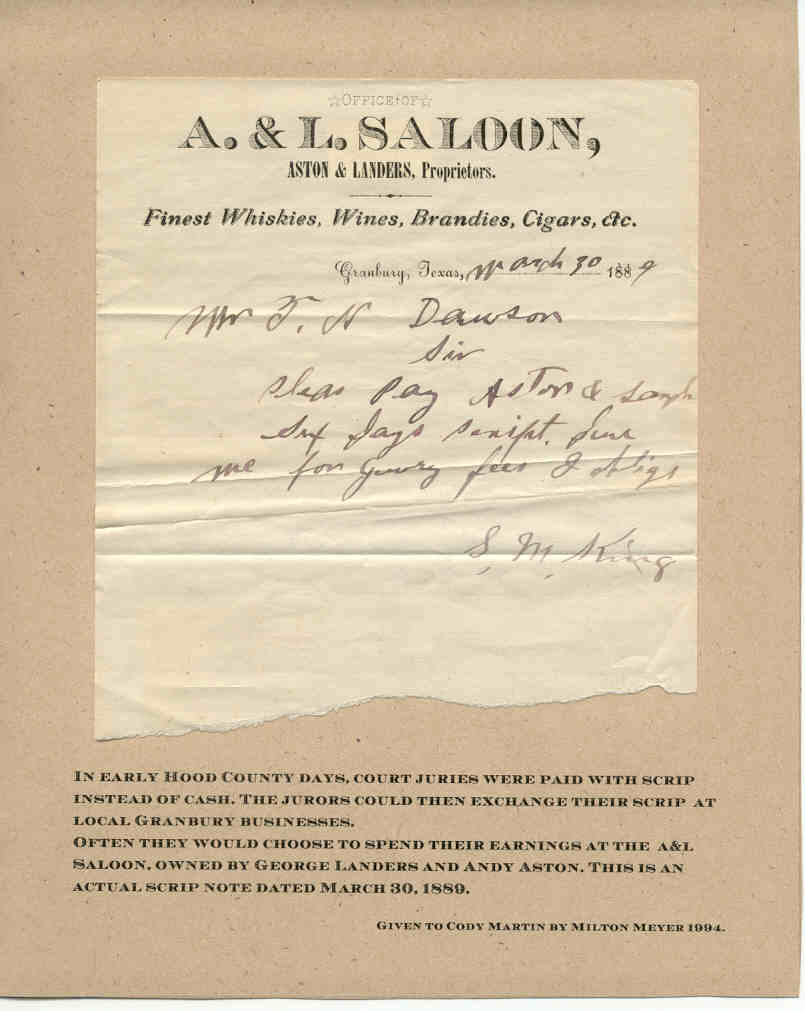 ☆OFFICE†OF☆
A. & L. SALOON,
ASTON & LANDERS, Proprietors.
Finest Whiskies, Wines, Brandies, Cigars, &c.
Granbury, Texas, March 30 1889
Mr T. H Dawson
Sir
Pleas Pay Aston &
Six days script. due
me for Jurry fees & oblige
S. M. King
IN EARLY HOOD COUNTY DAYS, COURT JURIES WERE PAID WITH SCRIP
INSTEAD OF CASH. THE JURORS COULD THEN EXCHANGE THEIR SCRIP AT
LOCAL GRANBURY BUSINESSES.
OFTEN THEY WOULD CHOOSE TO SPEND THEIR EARNINGS AT THE A&L
SALOON, OWNED BY GEORGE LANDERS AND ANDY ASTON. THIS IS AN
ACTUAL SCRIP NOTE DATED MARCH 30, 1889.
GIVEN TO CODY MARTIN BY MILTON MEYER 1994.